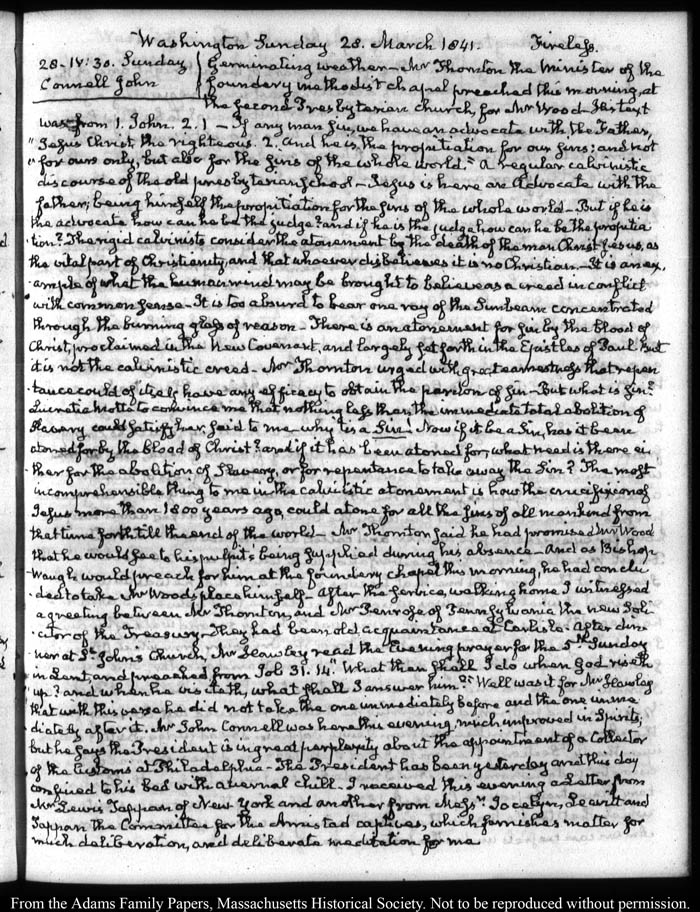 Washington Sunday 28. March 1841. Fireless.
28. IV:30. Sunday Germinating weather—Mr Thornton the Minister of the
Connell John foundery methodist chapel preached this morning, at
the second Presbyterian church, for Mr Wood—His text
was from 1. John. 2. 1—If any man sin, we have an advocate with the Father,
"Jesus Christ, the righteous. 2. And he is the propitiation for our sins: and not
"for ours only, but also for the sins of the whole world." A regular calvinistic
discourse of the old presbyterian school—Jesus is here an Advocate with the
father; being himself the propitiation for the sins of the whole world—But if he is
the advocate how can he be the judge? and if he is the judge how can he be the propitia
tion? The rigid calvinists consider the atonement by the death of the man Christ Jesus, as
the vital part of Christianity, and that whoever disbelieves it is no Christian.—It is an ex.
ample of what the human mind may be brought to believe as a creed in conflict
with common sense—It is too absurd to bear one ray of the Sunbeam concentrated
through the burning glass of reason—There is an atonement for sin by the blood of
Christ, proclaimed in the New Covenant, and largely set forth in the Epistles of Paul But
it is not the calvinistic creed—Mr Thornton urged with great earnestness that repen
tance could of itself have any efficacy to obtain the pardon of sin—But what is sin?
Lucretia Mott to convince me that nothing less than the immediate total abolition of
Slavery could satisfy her, said to me, why 'tis a Sin! Now if it be a Sin, has it been
atoned for by the blood of Christ? and if it has been atoned for, what need is there ei
ther for the abolition of Slavery, or for repentance to take away the Sin? The most
incomprehensible thing to me in the calvinistic atonement is how the crucifixion of
Jesus more than 1800 years ago, could atone for all the sins of all mankind from
that time forth till the end of the world—Mr Thornton said he had promised Mr Wood
that he would see to his pulpit's being supplied during his absence—and as Bishop
Waugh would preach for him at the foundery chapel this morning, he had conclu
ded to take Mr Wood's place himself—After the service, walking home I witnessed
a greeting between Mr Thornton, and Mr Penrose of Pennsylvania the new Soli
citor of the Treasury—They had been old acquaintance at Carlisle. After din
ner at St. John's Church, Mr Hawley read the Evening prayer for the 5th Sunday
in Lent, and preached from Job 31. 14. "What then shall I do when God riseth
up? and when he visiteth, what shall I answer him?" Well was it for Mr Hawley
that with this verse he did not take the one immediately before and the one imme
diately after it. Mr John Connell was here this evening, much improved in Spirits;
but he says the President is in great perplexity about the appointment of a Collector
of the Customs at Philadelphia—The President has been yesterday and this day
confined to his bed with a vernal chill—I received this evening a Letter from
Mr Lewis Tappan of New York and another from Messrs. Jocelyn, Leavitt and
Tappan the Committee for the Amistad captives, which furnishes matter for
much deliberation, and deliberate meditation for me
From the Adams Family Papers, Massachusetts Historical Society. Not to be reproduced without permission.